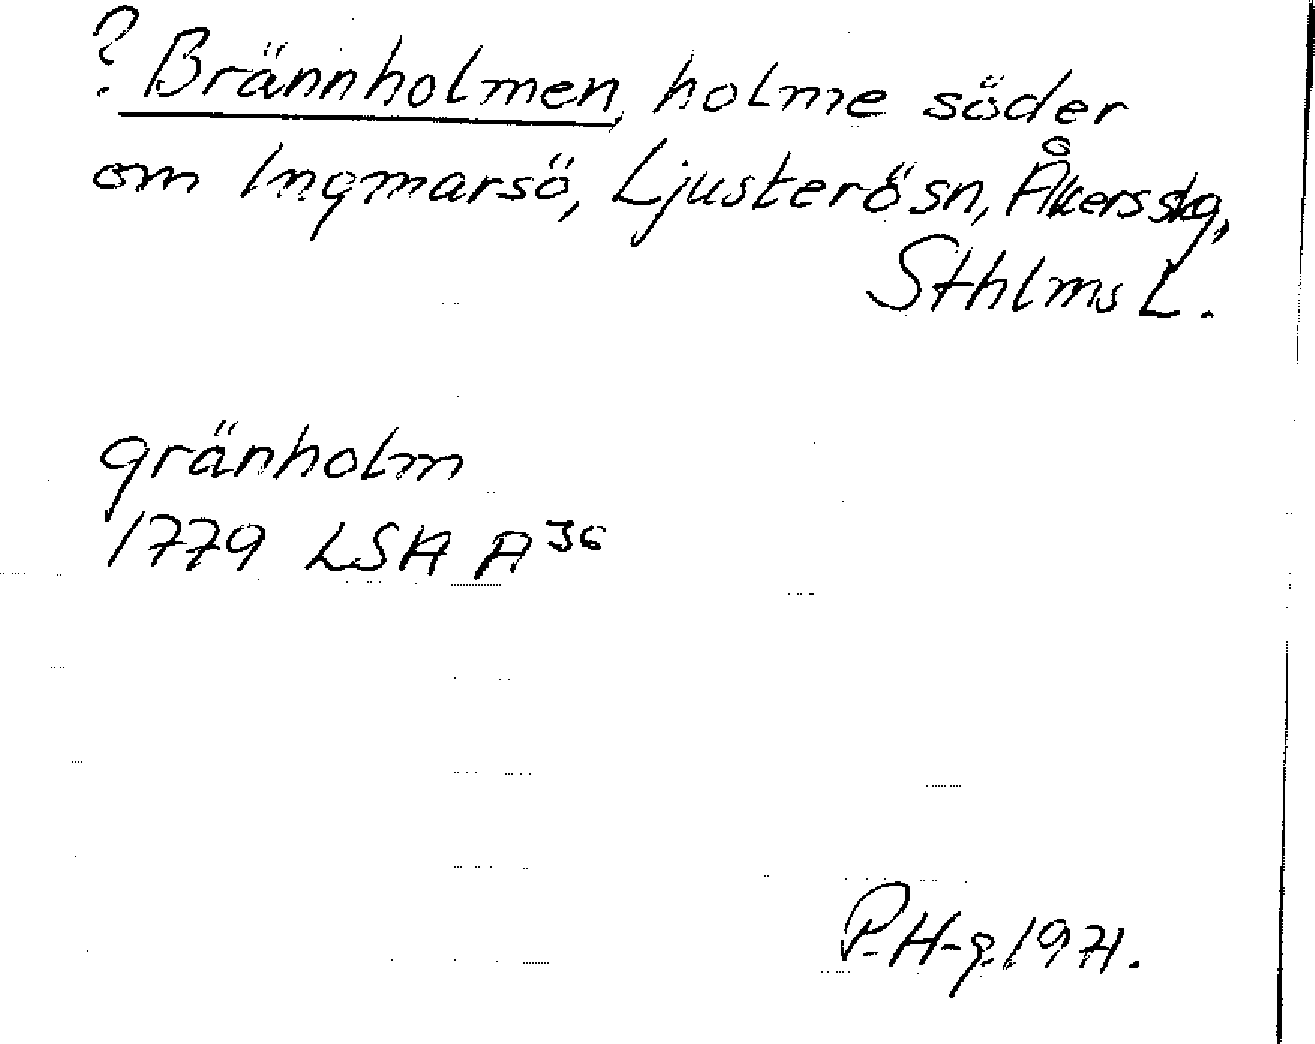 ? Brännholmen, holme söder
om Ingmarsö, Ljusterö sn, Åkers skg,
Sthlms L.
gränholm
1779 LSA A 36
P.H-g. 1971.